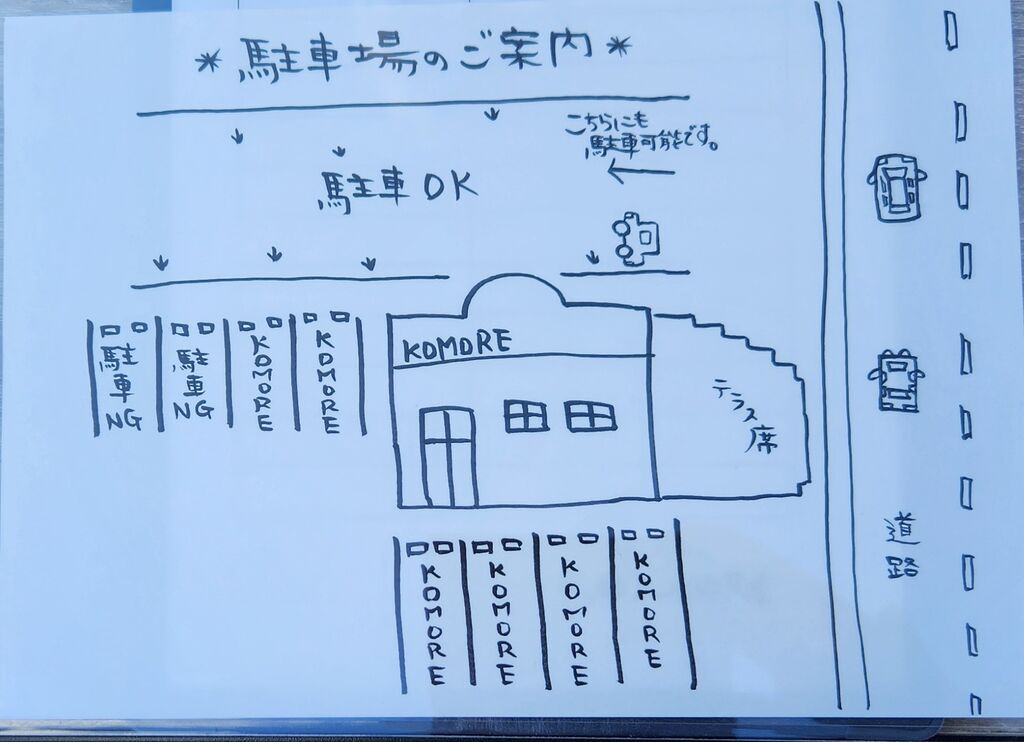 ＊駐車場のご案内＊
こちらにも
駐車可能です。
駐車OK
駐車NG
駐車NG
KOMORE
KOMORE
KOMORE
テラス席
道路
KOMORE
KOMORE
KOMORE
KOMORE